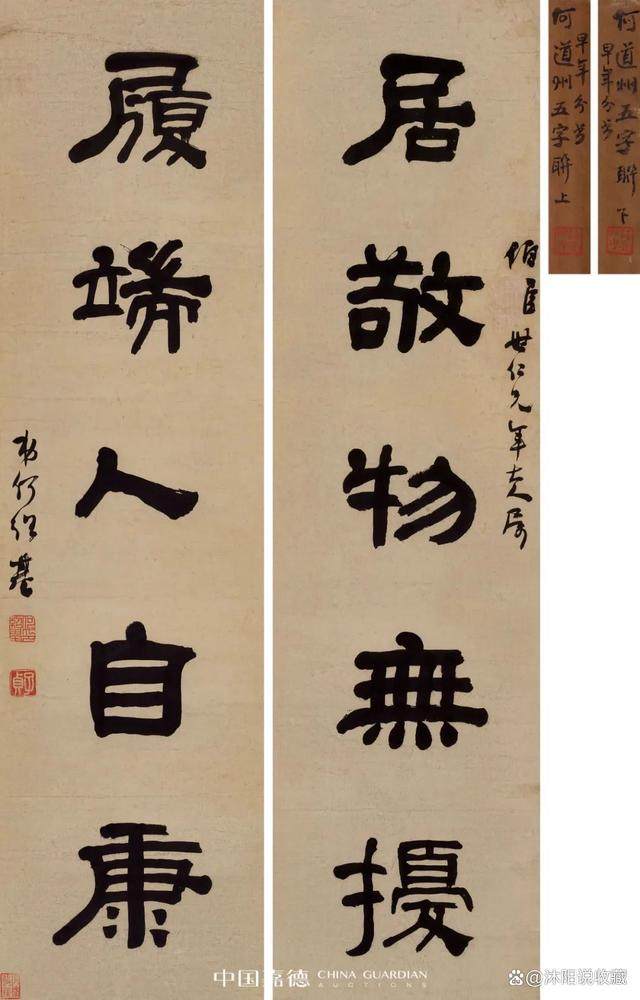 何道州五字聯 下
早年分書
何道州五字聯 上
早年分書
世仁兄年大人屬
居敬物無擾
履端人自康
弟何紹基
子貞
中国嘉德 CHINA GUARDIAN
AUCTIONS
@沐阳说收藏